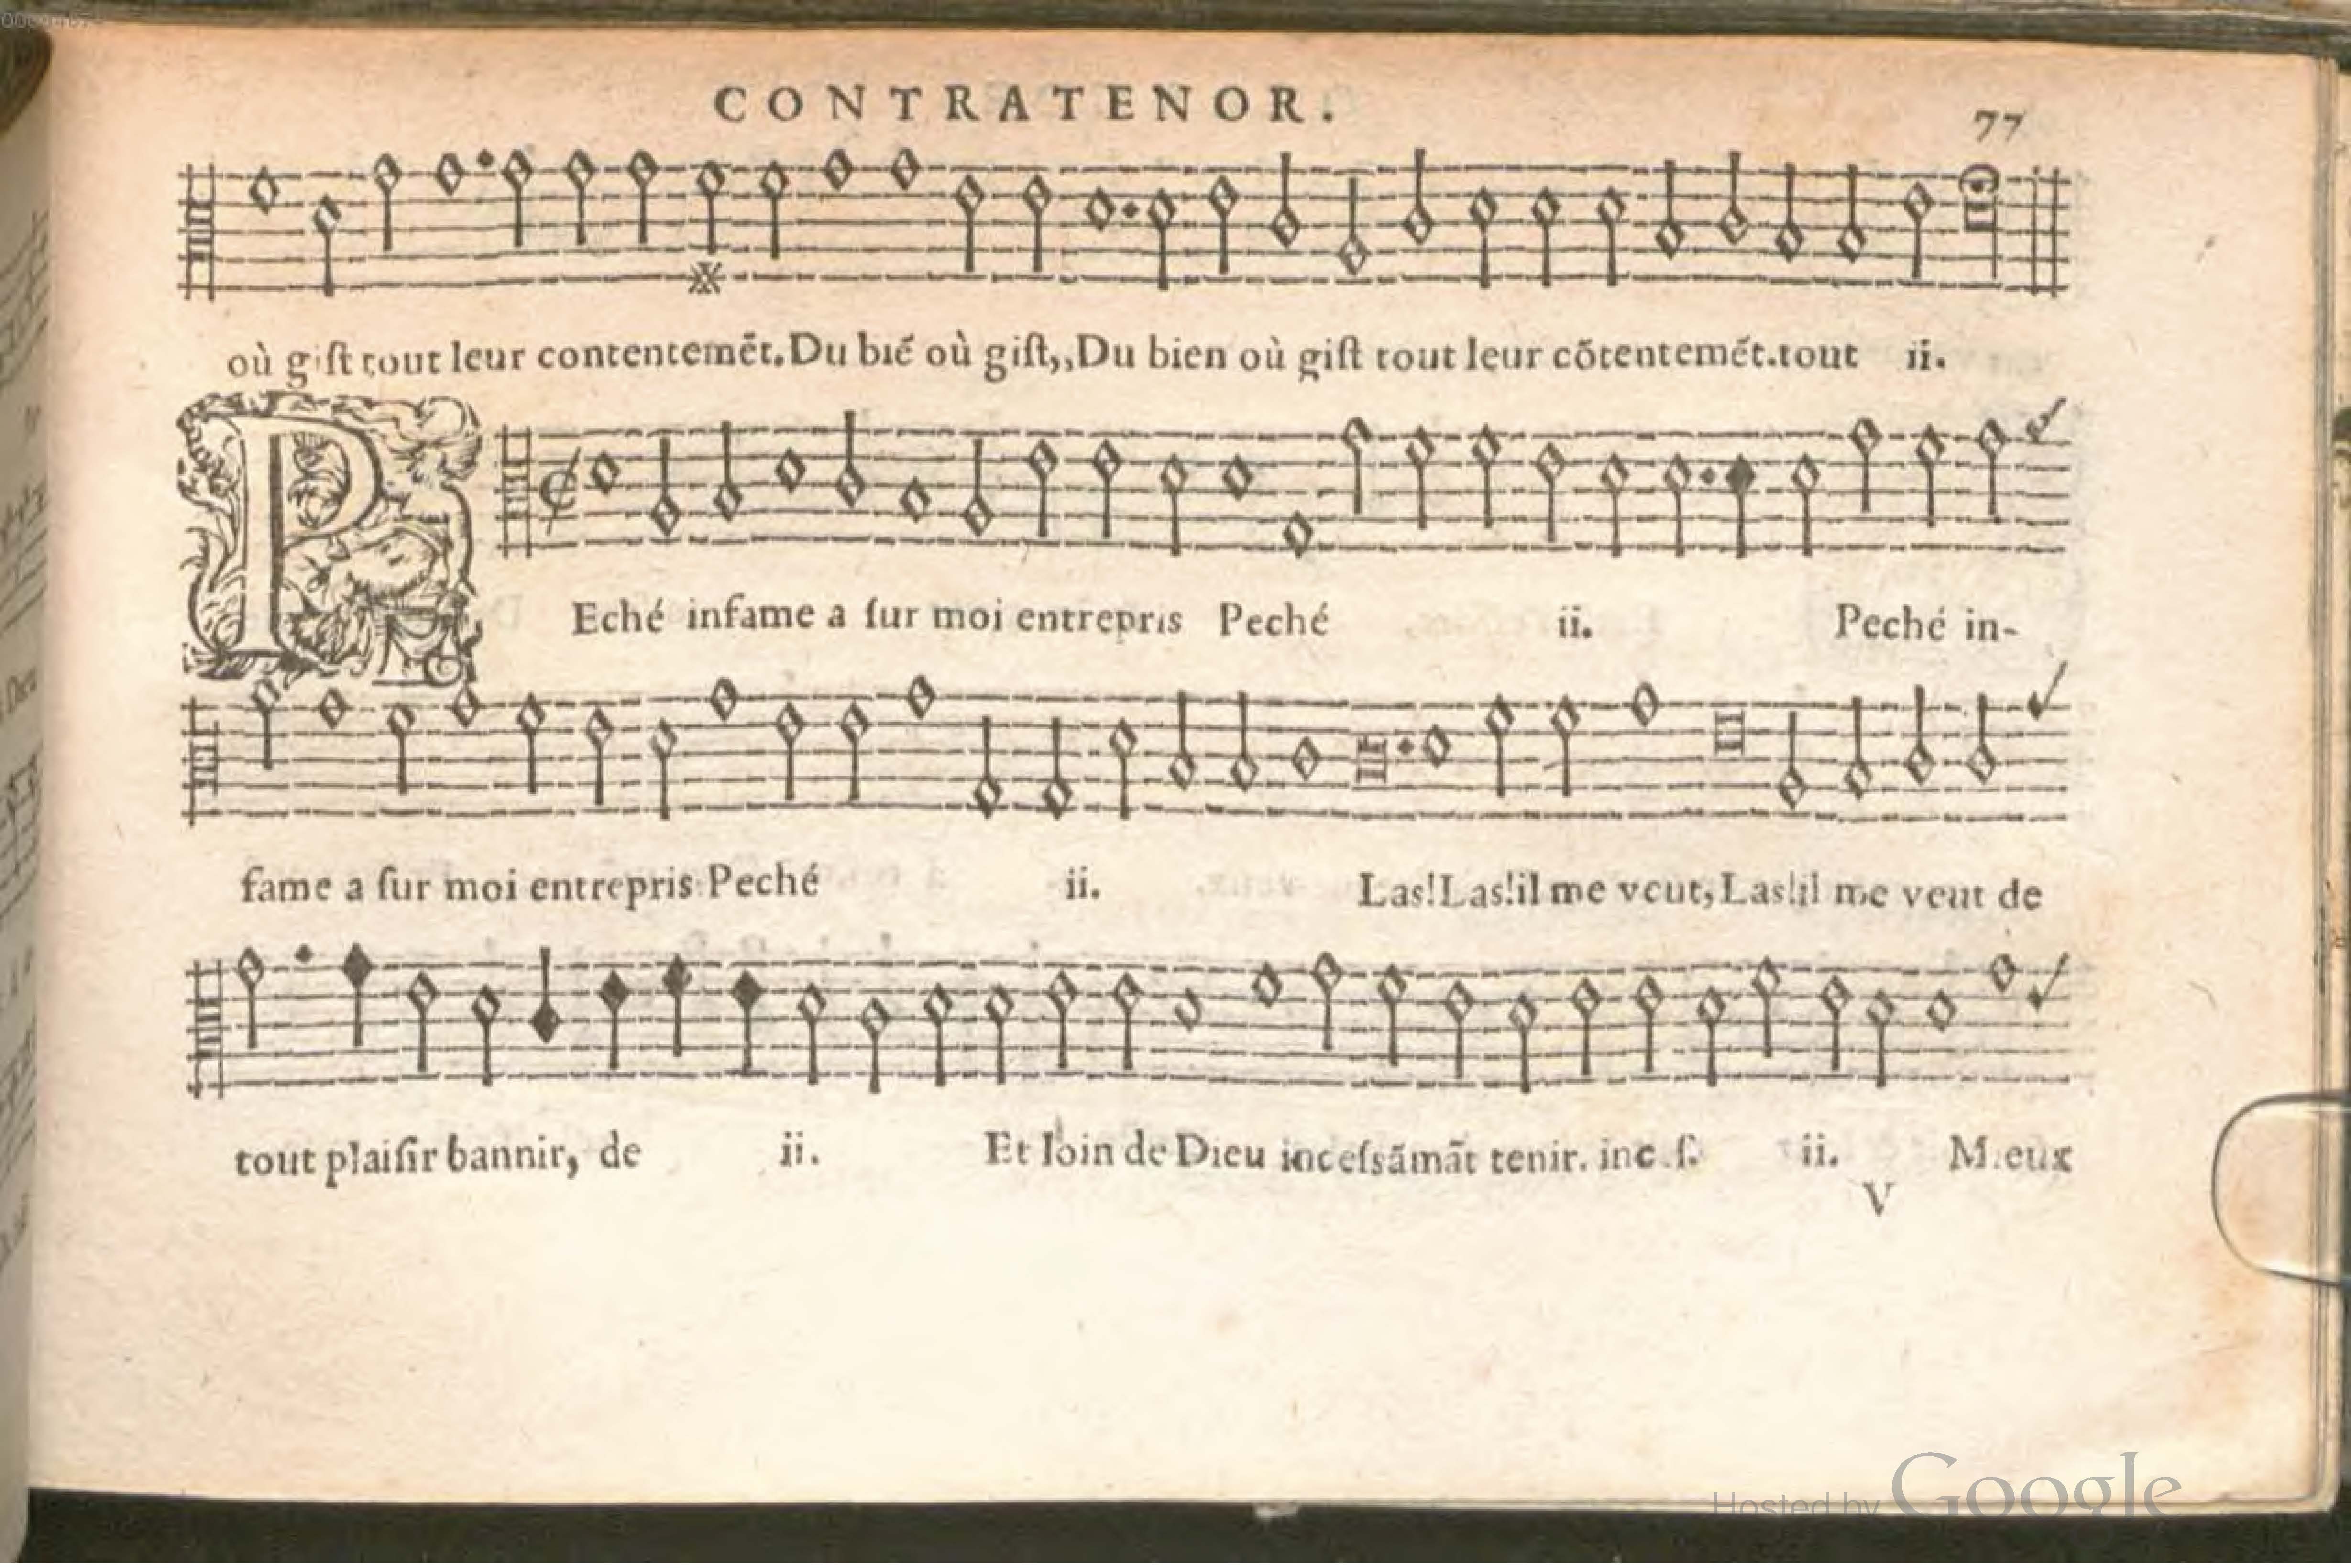 CONTRATENOR.
77
où gist tout leur contentemēt. Du bié où gist,, Du bien où gist tout leur cõtentemét. tout ii.
PEché infame a sur moi entrepris Peché ii. Peché in-
fame a sur moi entrepris Peché ii. Las! Las! il me veut, Las! il me veut de
tout plaisir bannir, de ii. Et loin de Dieu incessãmãt tenir. ii. Mieux
V
Hosted by Google